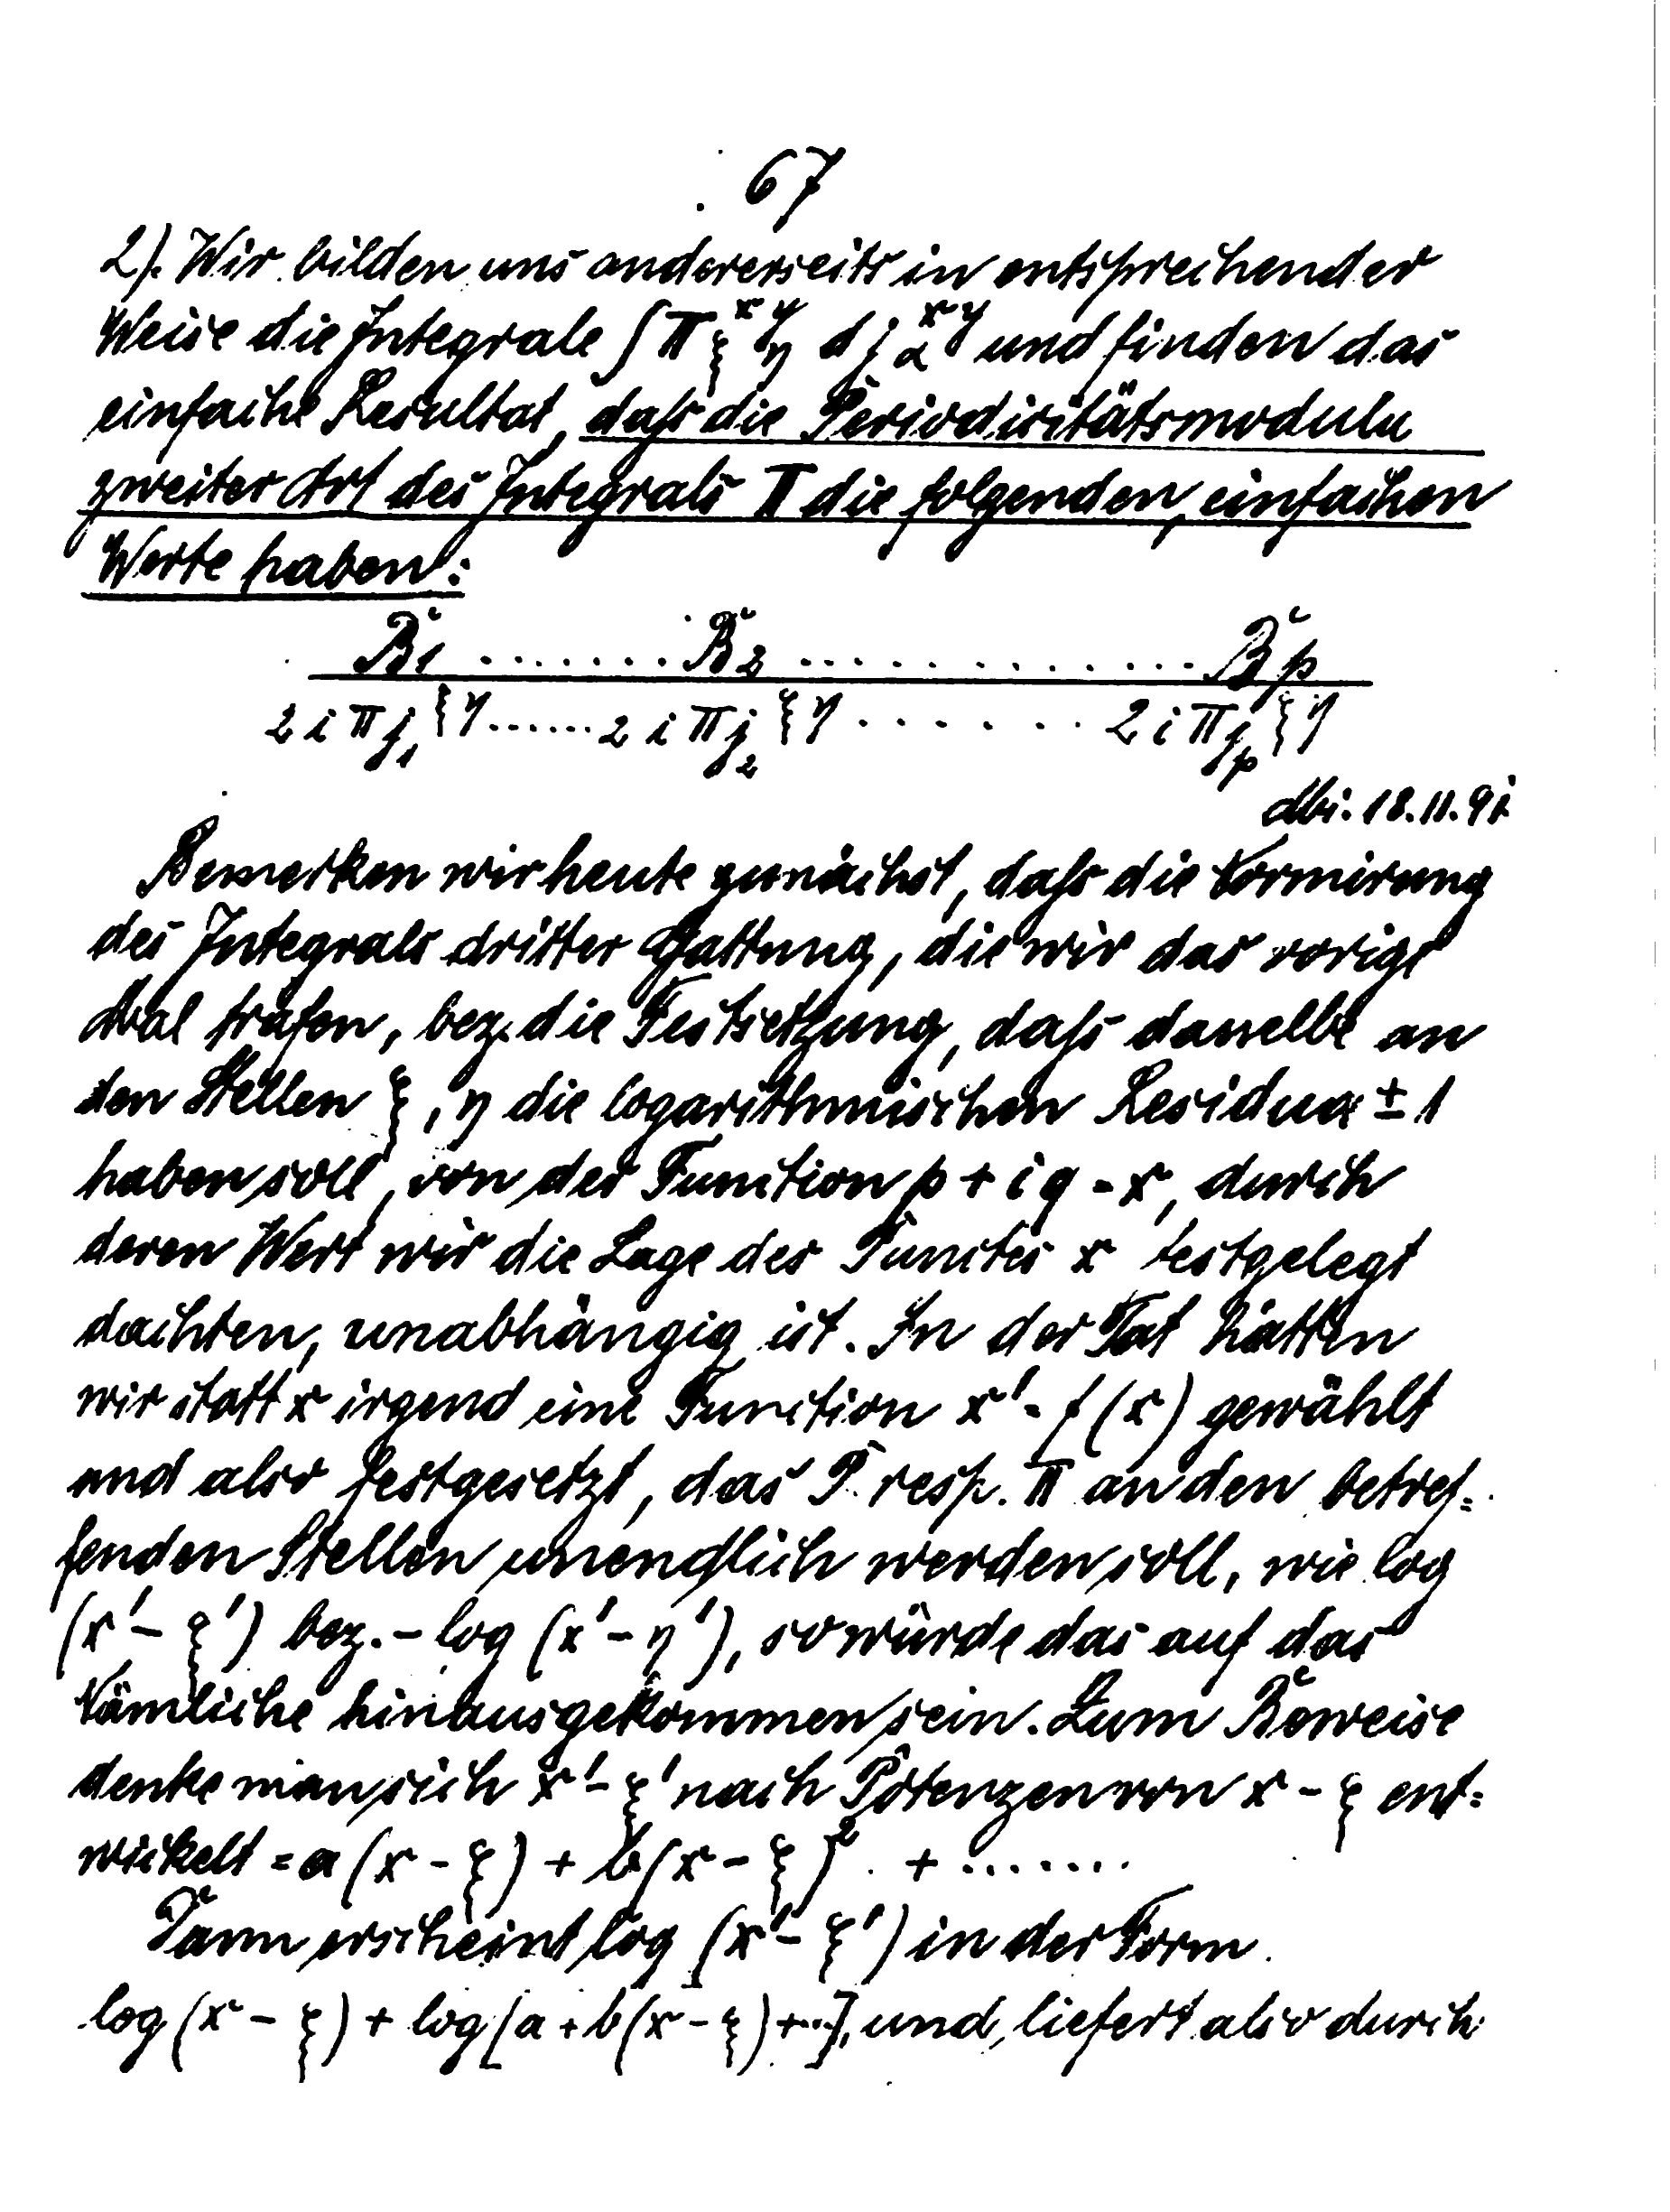 67
2). Wir bilden uns andererseits in entsprechender
Weise die Integrale ∫ Π_{ξη}^{xy} dj_α^{xy} und finden das
einfache Resultat, daſs die Periodicitätsmoduln
zweiter Art des Integrals Π die folgenden, einfachen
Werte haben:
B1 ....... B2 ............. Bp
2iπj₁^{ξη} ...... 2iπj₂^{ξη} ....... 2iπj_p^{ξη}
Mi. 18.11.91.
Bemerken wir heute zunächst, daſs die Normirung
des Integrals dritter Gattung, die wir das vorige
Mal trafen, bez. die Festsetzung, daſs dasselbe an
den Stellen ξ, η die logarithmischen Residua ± 1
haben soll, von der Function p + iq = x, durch
deren Wert wir die Lage des Punctes x festgelegt
dachten, unabhängig ist. In der Tat hätten
wir statt x irgend eine Function x' = f(x) gewählt
und also festgesetzt, das P resp. Π an den betref=
fenden Stellen unendlich werden soll, wie log
(x' - ξ') bez. - log (x' - η'), so würde das auf das
Nämliche hinausgekommen sein. Zum Beweise
denke man sich x' - ξ' nach Potenzen von x - ξ ent=
wickelt = a(x - ξ) + b(x - ξ)² + .......
Dann erscheint log (x' - ξ') in der Form
log (x - ξ) + log [a + b(x - ξ) + ..], und liefert also durch